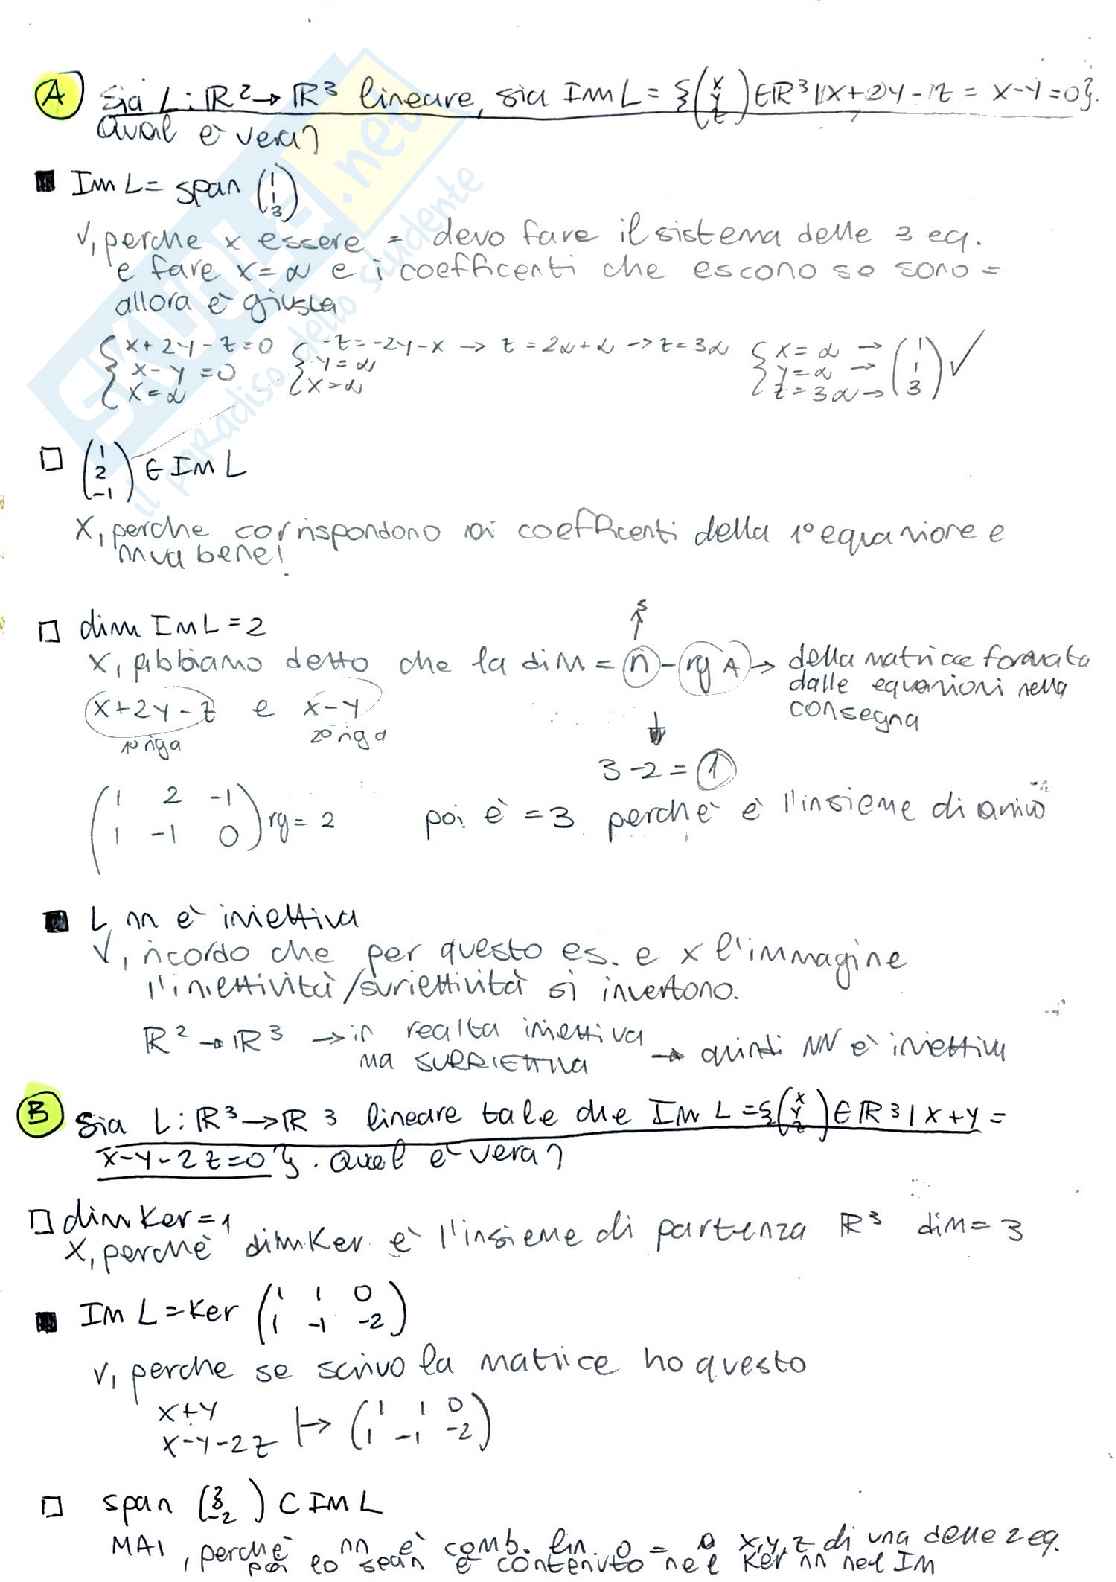 A Sia L: ℝ² → ℝ³ lineare, sia Im L = {(x y z) ∈ ℝ³ | x+2y-z = x-y=0}.
Qual è vera?
■ Im L = span (1 1 3)
V, perche x essere = devo fare il sistema delle 3 eq.
e fare x=α e i coefficenti che escono se sono =
allora è giusta
{x+2y-z=0 {-z=-2y-x → z=2α+α → z=3α {x=α → (1 1 3) ✓
x-y=0 y=α y=α →
x=α x=α z=3α →
□ (1 2 -1) ∈ Im L
X, perche corrispondono ai coefficenti della 1° equazione e
nn va bene!
□ dim Im L = 2
X, abbiamo detto che la dim = n - rg A → della matrice formata
dalle equazioni nella
consegna
x+2y-z e x-y
1° riga 2° riga
3-2=1
(1 2 -1
1 -1 0) rg=2 poi è =3 perchè è l'insieme di arrivo
■ L nn è iniettiva
V, ricordo che per questo es. e x l'immagine
l'iniettività/suriettività si invertono.
ℝ² → ℝ³ → in realta iniettiva → quindi NN è iniettiva
ma SURRIETTIVA
B Sia L: ℝ³ → ℝ³ lineare tale che Im L = {(x y z) ∈ ℝ³ | x+y =
x-y-2z=0}. Qual è vera?
□ dim Ker = 1
X, perchè dim Ker è l'insieme di partenza ℝ³ dim=3
■ Im L = Ker (1 1 0
1 -1 -2)
V, perche se scrivo la matrice ho questo
x+y
x-y-2z ↦ (1 1 0
1 -1 -2)
□ span ( -2) ⊂ Im L
MAI, perchè nn è comb. lin. o = a x,y,z di una delle 2 eq.
poi lo span è contenuto nel Ker nn nel Im
SKUOLA.net
il paradiso dello studente